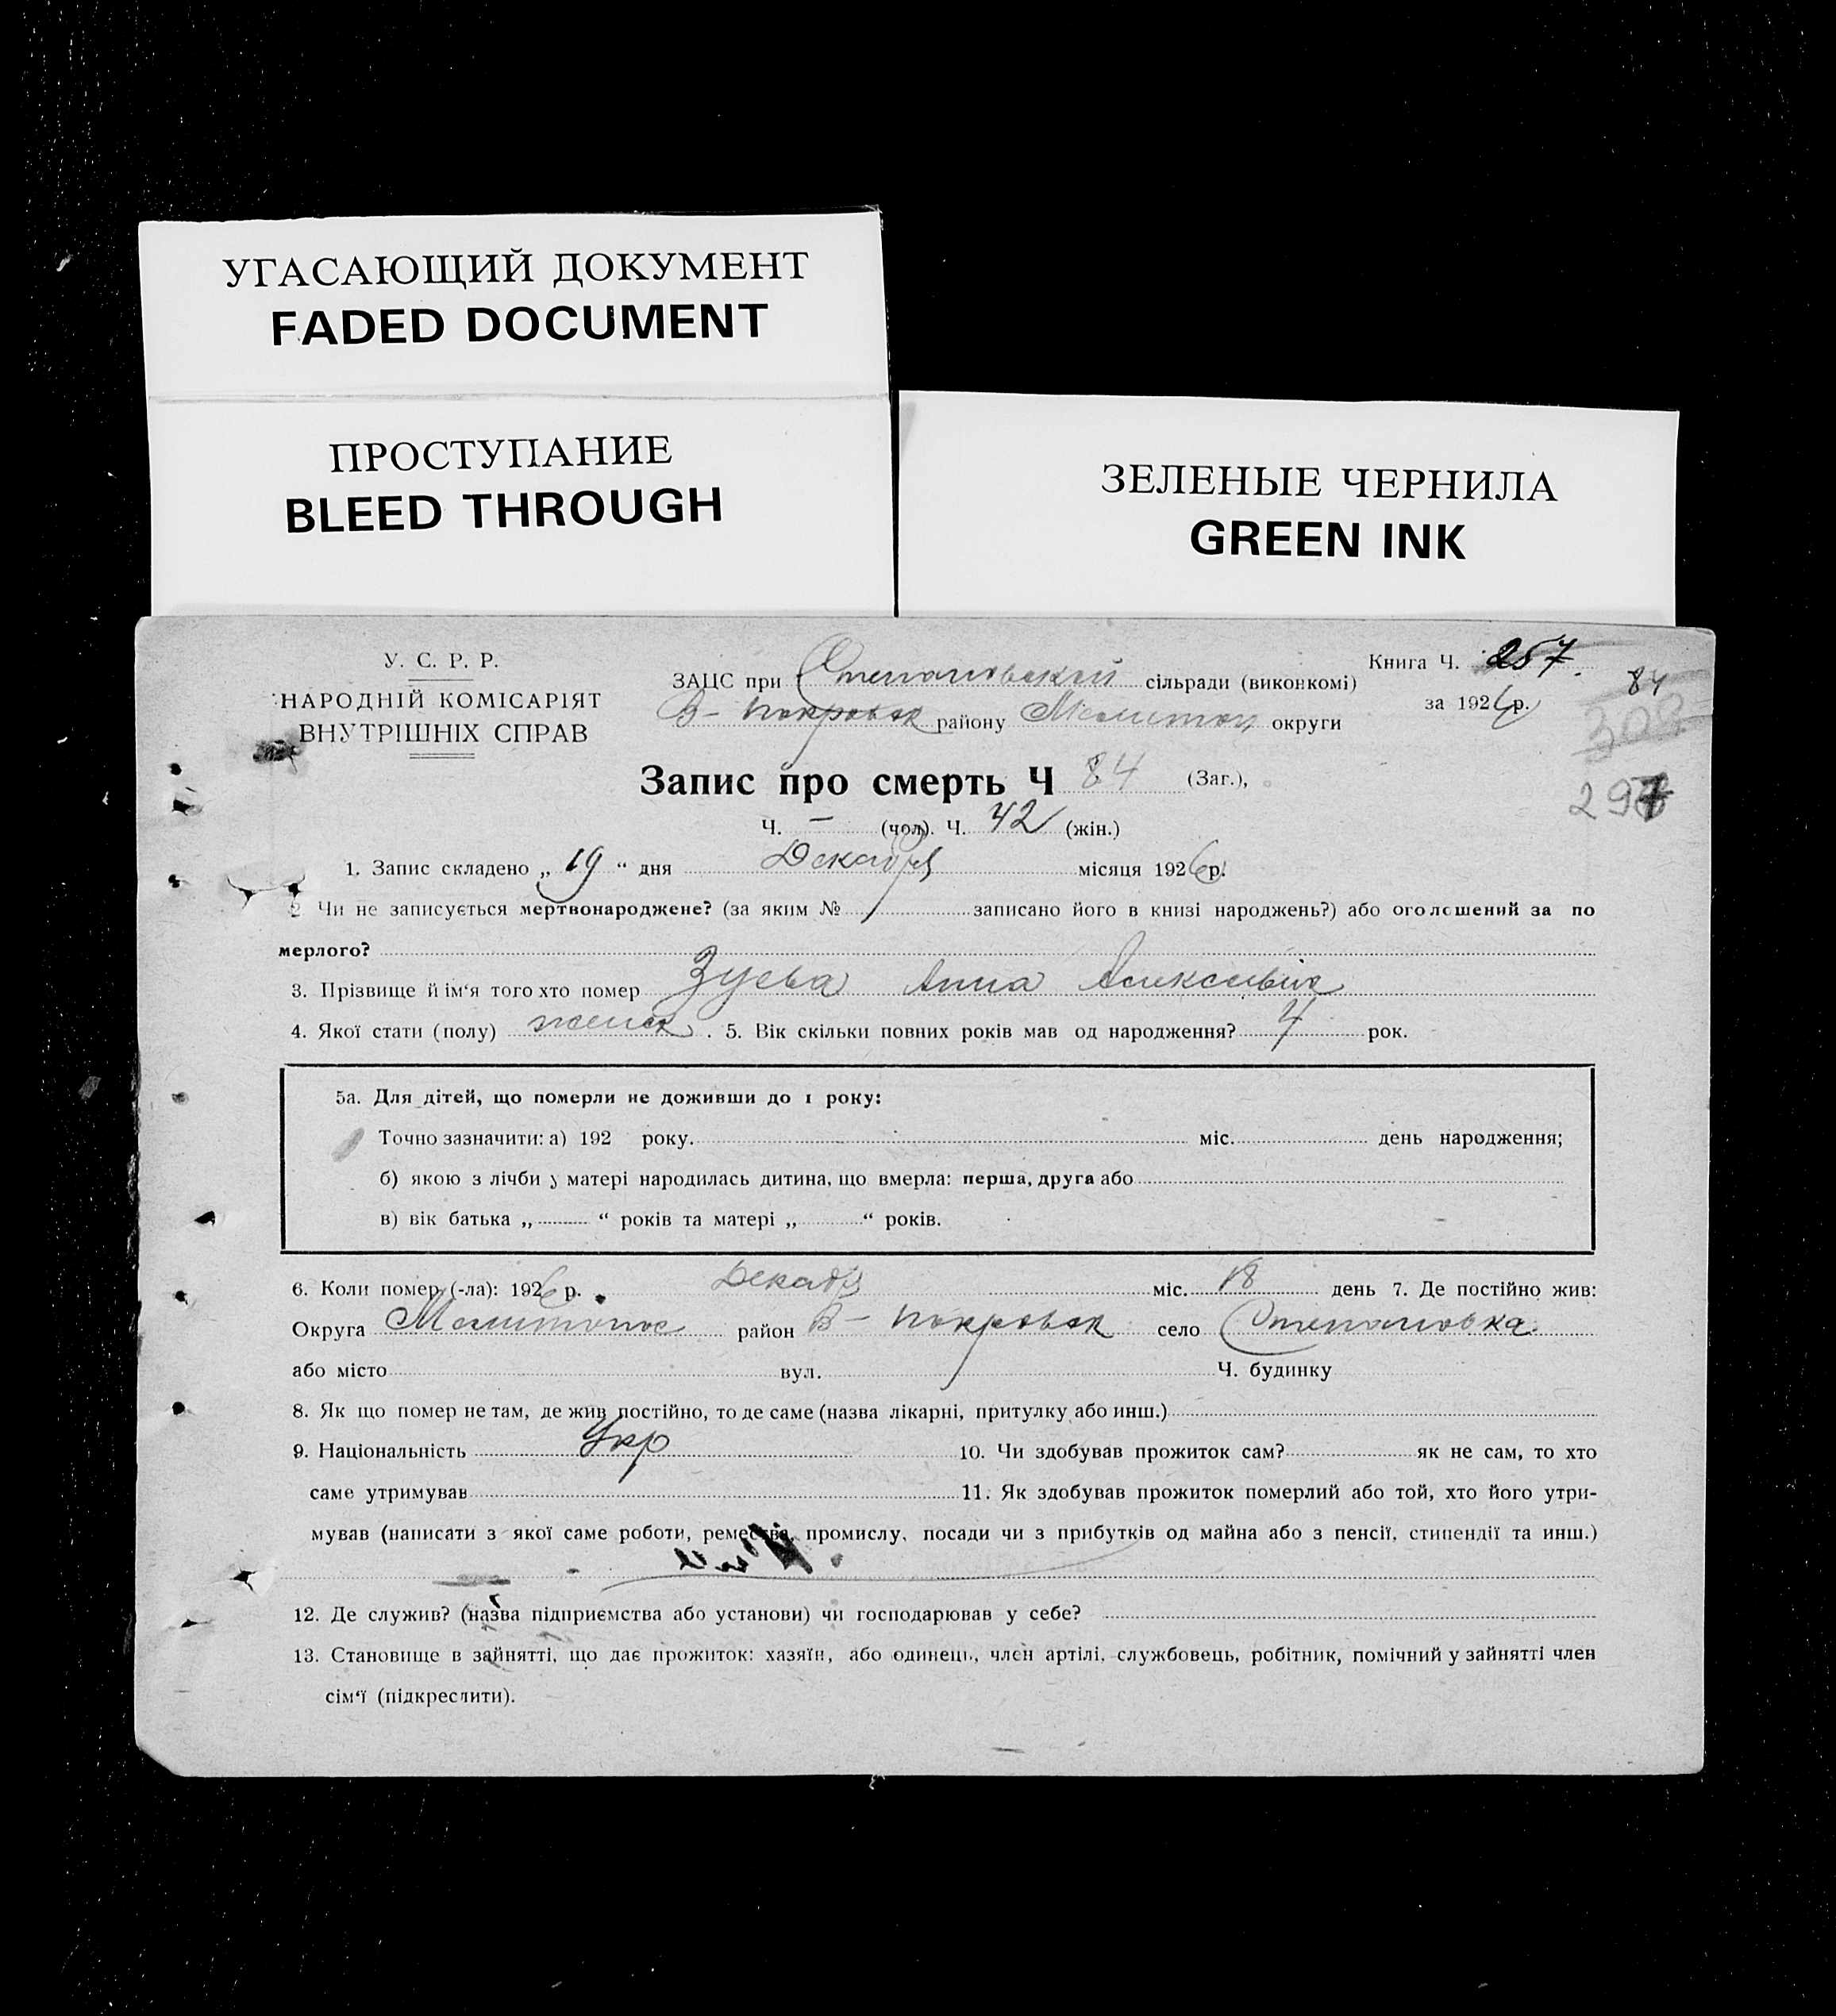 УГАСАЮЩИЙ ДОКУМЕНТ
FADED DOCUMENT
ПРОСТУПАНИЕ
BLEED THROUGH
ЗЕЛЕНЫЕ ЧЕРНИЛА
GREEN INK
У. С. Р. Р.
НАРОДНІЙ КОМІСАРІЯТ
ВНУТРІШНІХ СПРАВ
ЗАЦС при Степановской сільради (виконкомі)
В- Покровск району Мелитоп округи
Книга Ч. 257.
за 1926 р.
84
308
297
Запис про смерть Ч 84 (Заг.),
Ч. – (чол). Ч. 42 (жін.)
1. Запис складено „ 19 “ дня Декабря місяця 1926 р.
2 Чи не записується мертвонароджене? (за яким № записано його в книзі народжень?) або оголошений за по
мерлого?
3. Прізвище й ім‘я того хто помер Зуева Анна Алексеевна
4. Якої стати (полу) женск . 5. Вік скільки повних років мав од народження? 4 рок.
5а. Для дітей, що померли не доживши до 1 року:
Точно зазначити: а) 192 року. міс. день народження;
б) якою з лічби у матері народилась дитина, що вмерла: перша, друга або
в) вік батька „ “ років та матері „ “ років.
6. Коли помер (-ла): 1926 р. Декабря міс. 18 день 7. Де постійно жив:
Округа Мелитопос район В- Покровск село Степановка
або місто вул. Ч. будинку
8. Як що помер не там, де жив постійно, то де саме (назва лікарні, притулку або инш.)
9. Національність Укр 10. Чи здобував прожиток сам? як не сам, то хто
саме утримував 11. Як здобував прожиток померлий або той, хто його утри-
мував (написати з якої саме роботи, ремества, промислу, посади чи з прибутків од майна або з пенсії, стипендії та инш.)
12. Де служив? (назва підприємства або установи) чи господарював у себе?
13. Становище в зайнятті, що дає прожиток: хазяїн, або одинець, член артілі, службовець, робітник, помічний у зайнятті член
сім‘ї (підкреслити).